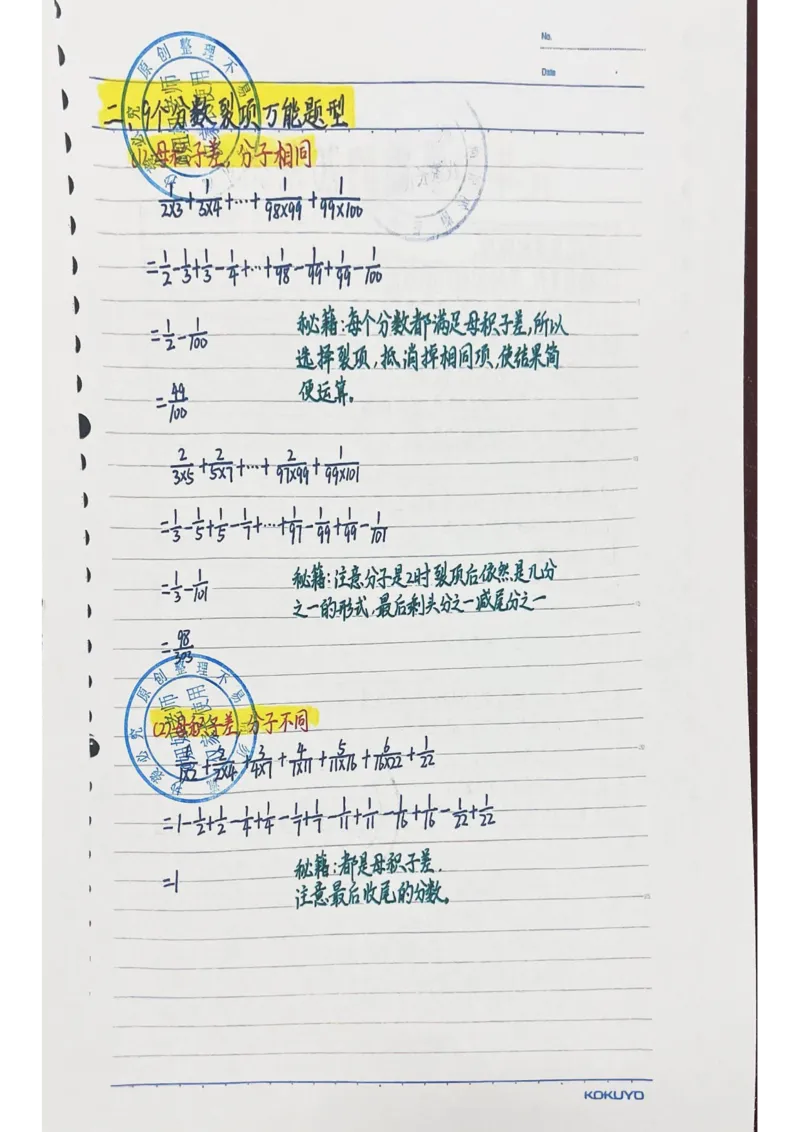 No.
Date
二、9个分数裂项万能题型
(1)母积子差,分子相同
1/2X3+1/3X4+…+1/98X99+1/99X100
=1/2-1/3+1/3-1/4+…+1/98-1/99+1/99-1/100
=1/2-1/100
秘籍:每个分数都满足母积子差,所以
选择裂项,抵消掉相同项,使结果简
便运算。
=49/100
2/3X5+2/5X7+…+2/97X99+1/99X101
=1/3-1/5+1/5-1/7+…+1/97-1/99+1/99-1/101
=1/3-1/101
秘籍:注意分子是2时裂项后依然是几分
之一的形式,最后剩头分之一减尾分之一
=98/303
原创整理不易
(2)母积子差,分子不同
1/1X2+2/2X4+3/4X7+4/7X11+5/11X16+6/16X22+1/22
=1-1/2+1/2-1/4+1/4-1/7+1/7-1/11+1/11-1/16+1/16-1/22+1/22
=1
秘籍:都是母积子差.
注意最后收尾的分数。
KOKUYO